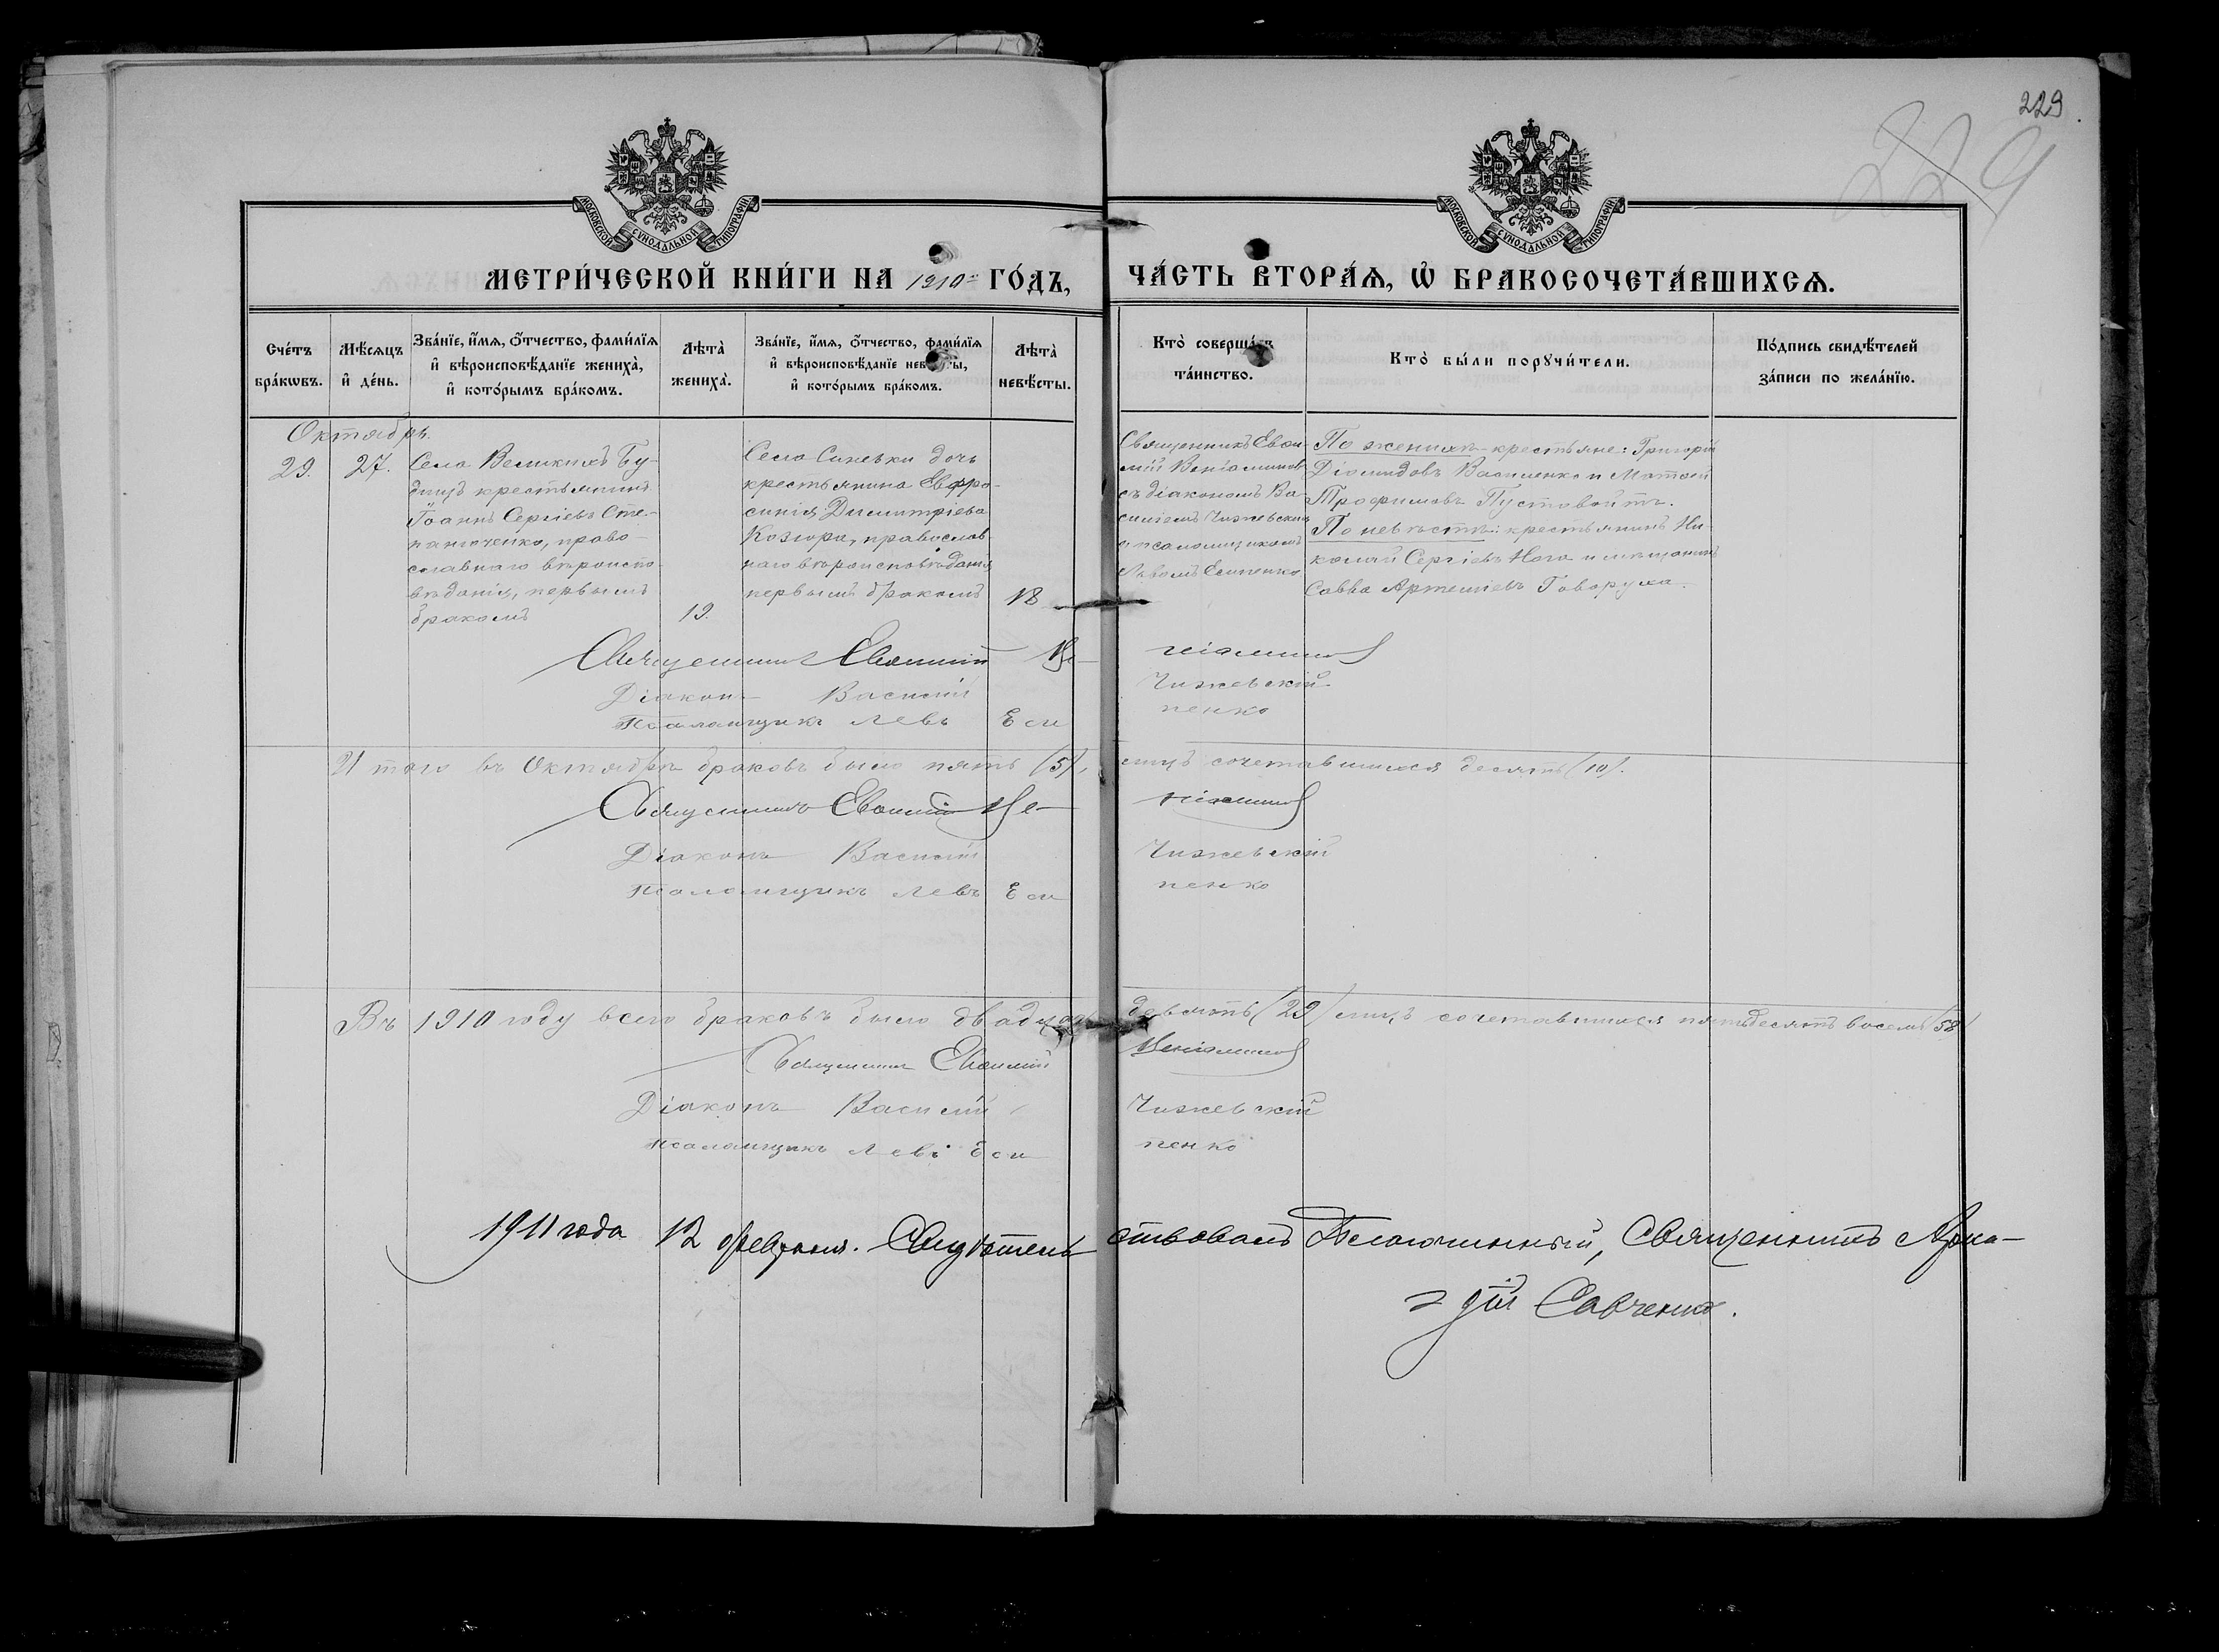 229
229
МОСКОВСКОЙ СУНОДАЛЬНОЙ ТИПОГРАФІИ
МОСКОВСКОЙ СУНОДАЛЬНОЙ ТИПОГРАФІИ
МЕТРИ́ЧЕСКОЙ КНИ́ГИ НА 1910 ГО́ДЪ,
ЧА́СТЬ ВТОРА́Ѧ, Ѽ БРАКОСОЧЕТА́ВШИХСѦ.
Счéтъ бра́кѡвъ.
Мѣ́сѧцъ и҆ де́нь.
Зва́нїе, и҆́мѧ, ѻ҆́тчество, фами́лїѧ
и҆ вѣроисповѣ́данїе жениха̀,
и҆ кото́рымъ бра́комъ.
Лѣта̀ жениха̀.
Зва́нїе, и҆́мѧ, ѻ҆́тчество, фами́лїѧ
и҆ вѣроисповѣ́данїе невѣ́сты,
и҆ кото́рымъ бра́комъ.
Лѣта̀ невѣ́сты.
Кто̀ соверша́лъ
та́инство.
Кто̀ бы́ли порꙋчи́тели.
По́дпись свидѣ́телей
за́писи по жела́нїю.
Октябрь.
29.
27.
Села Великихъ Бу-
дищъ крестьянинъ
Іоаннъ Сергіевъ Сте-
панюченко, право-
славнаго вѣроиспо-
вѣданія, первымъ
бракомъ
19.
Села Синевки дочь
крестьянина Евфро-
синія Димитріева
Козюра, православ
наго вѣроисповѣданія
первымъ бракомъ
18
Священникъ Евѳи-
мій Веніаминовъ
съ діакономъ Ва-
силіемъ Чижевскимъ
и псаломщикомъ
Львомъ Есипенко
По женихѣ крестьяне: Григорій
Діомидовъ Василенко и Матѳей
Трофимовъ Пустовойтъ.
По невѣстѣ: крестьянинъ Ни-
колай Сергіевъ Нога и мѣщанинъ
Савва Артеміевъ Говоруха.
Священникъ Евѳимій Веніаминовъ
Діаконъ Василій Чижевскій
Псаломщикъ Левъ Есипенко
Итого въ Октябрѣ браковъ было пять (5), лицъ сочетавшихся десять (10).
Священникъ Евѳимій Веніаминовъ
Діаконъ Василій Чижевскій
Псаломщикъ Левъ Есипенко
Въ 1910 году всего браковъ было двадцать девять (29) лицъ сочетавшихся пятьдесятъ восемь (58)
Священникъ Евѳимій Веніаминовъ
Діаконъ Василій Чижевскій
Псаломщикъ Левъ Есипенко
1911 года 12 февраля. Свидѣтельствовалъ Благочинный, Священникъ Арка-
дій Савченко.